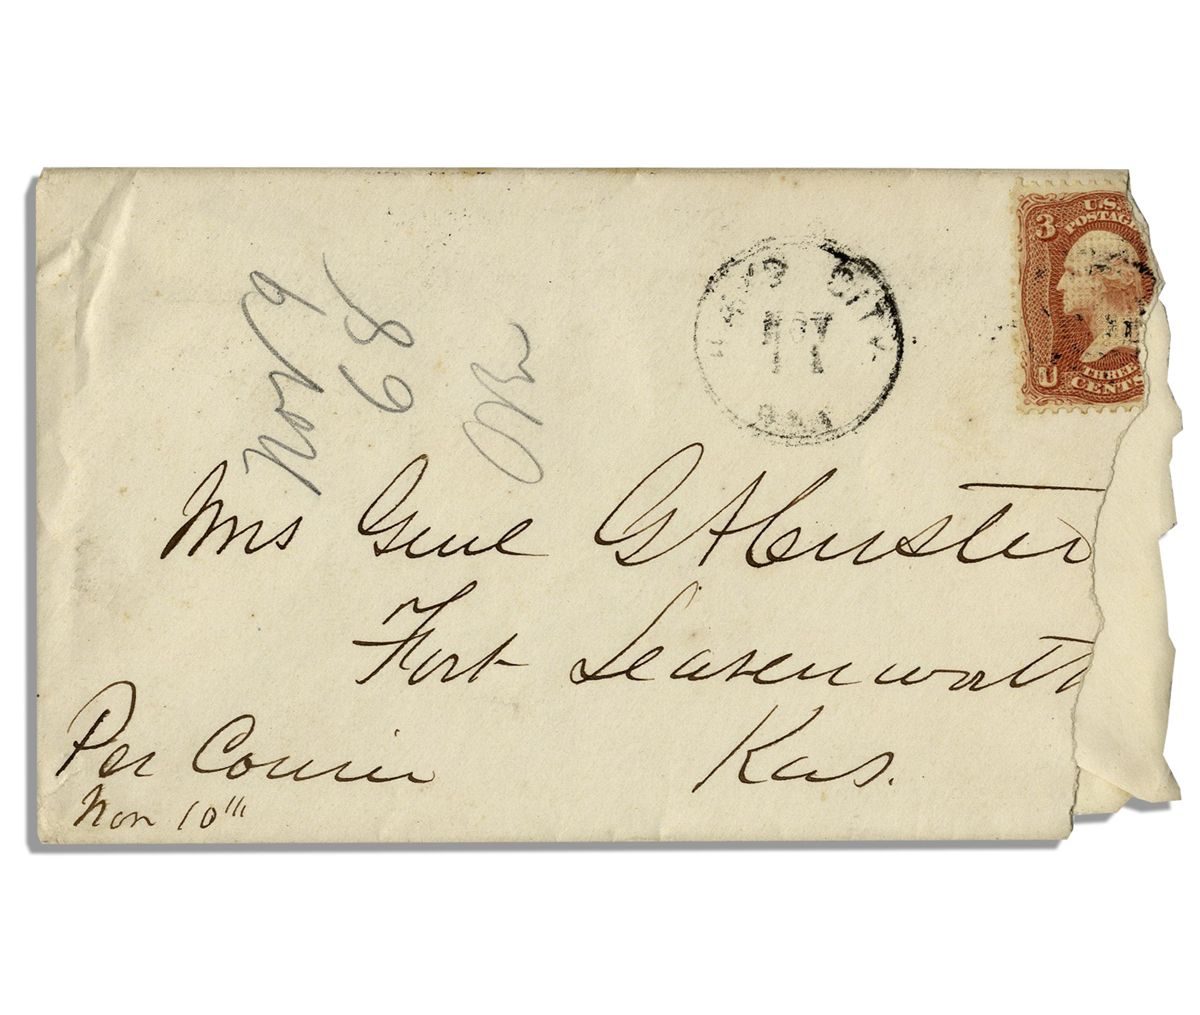 Nov 9
68
HAYS CITY.
NOV
11
KAS
U.S.
POSTAGE
3
U
THREE
CENTS
Mrs Genl GACuster
Fort Leavenworth
Kas.
Per Courier
Nov 10th